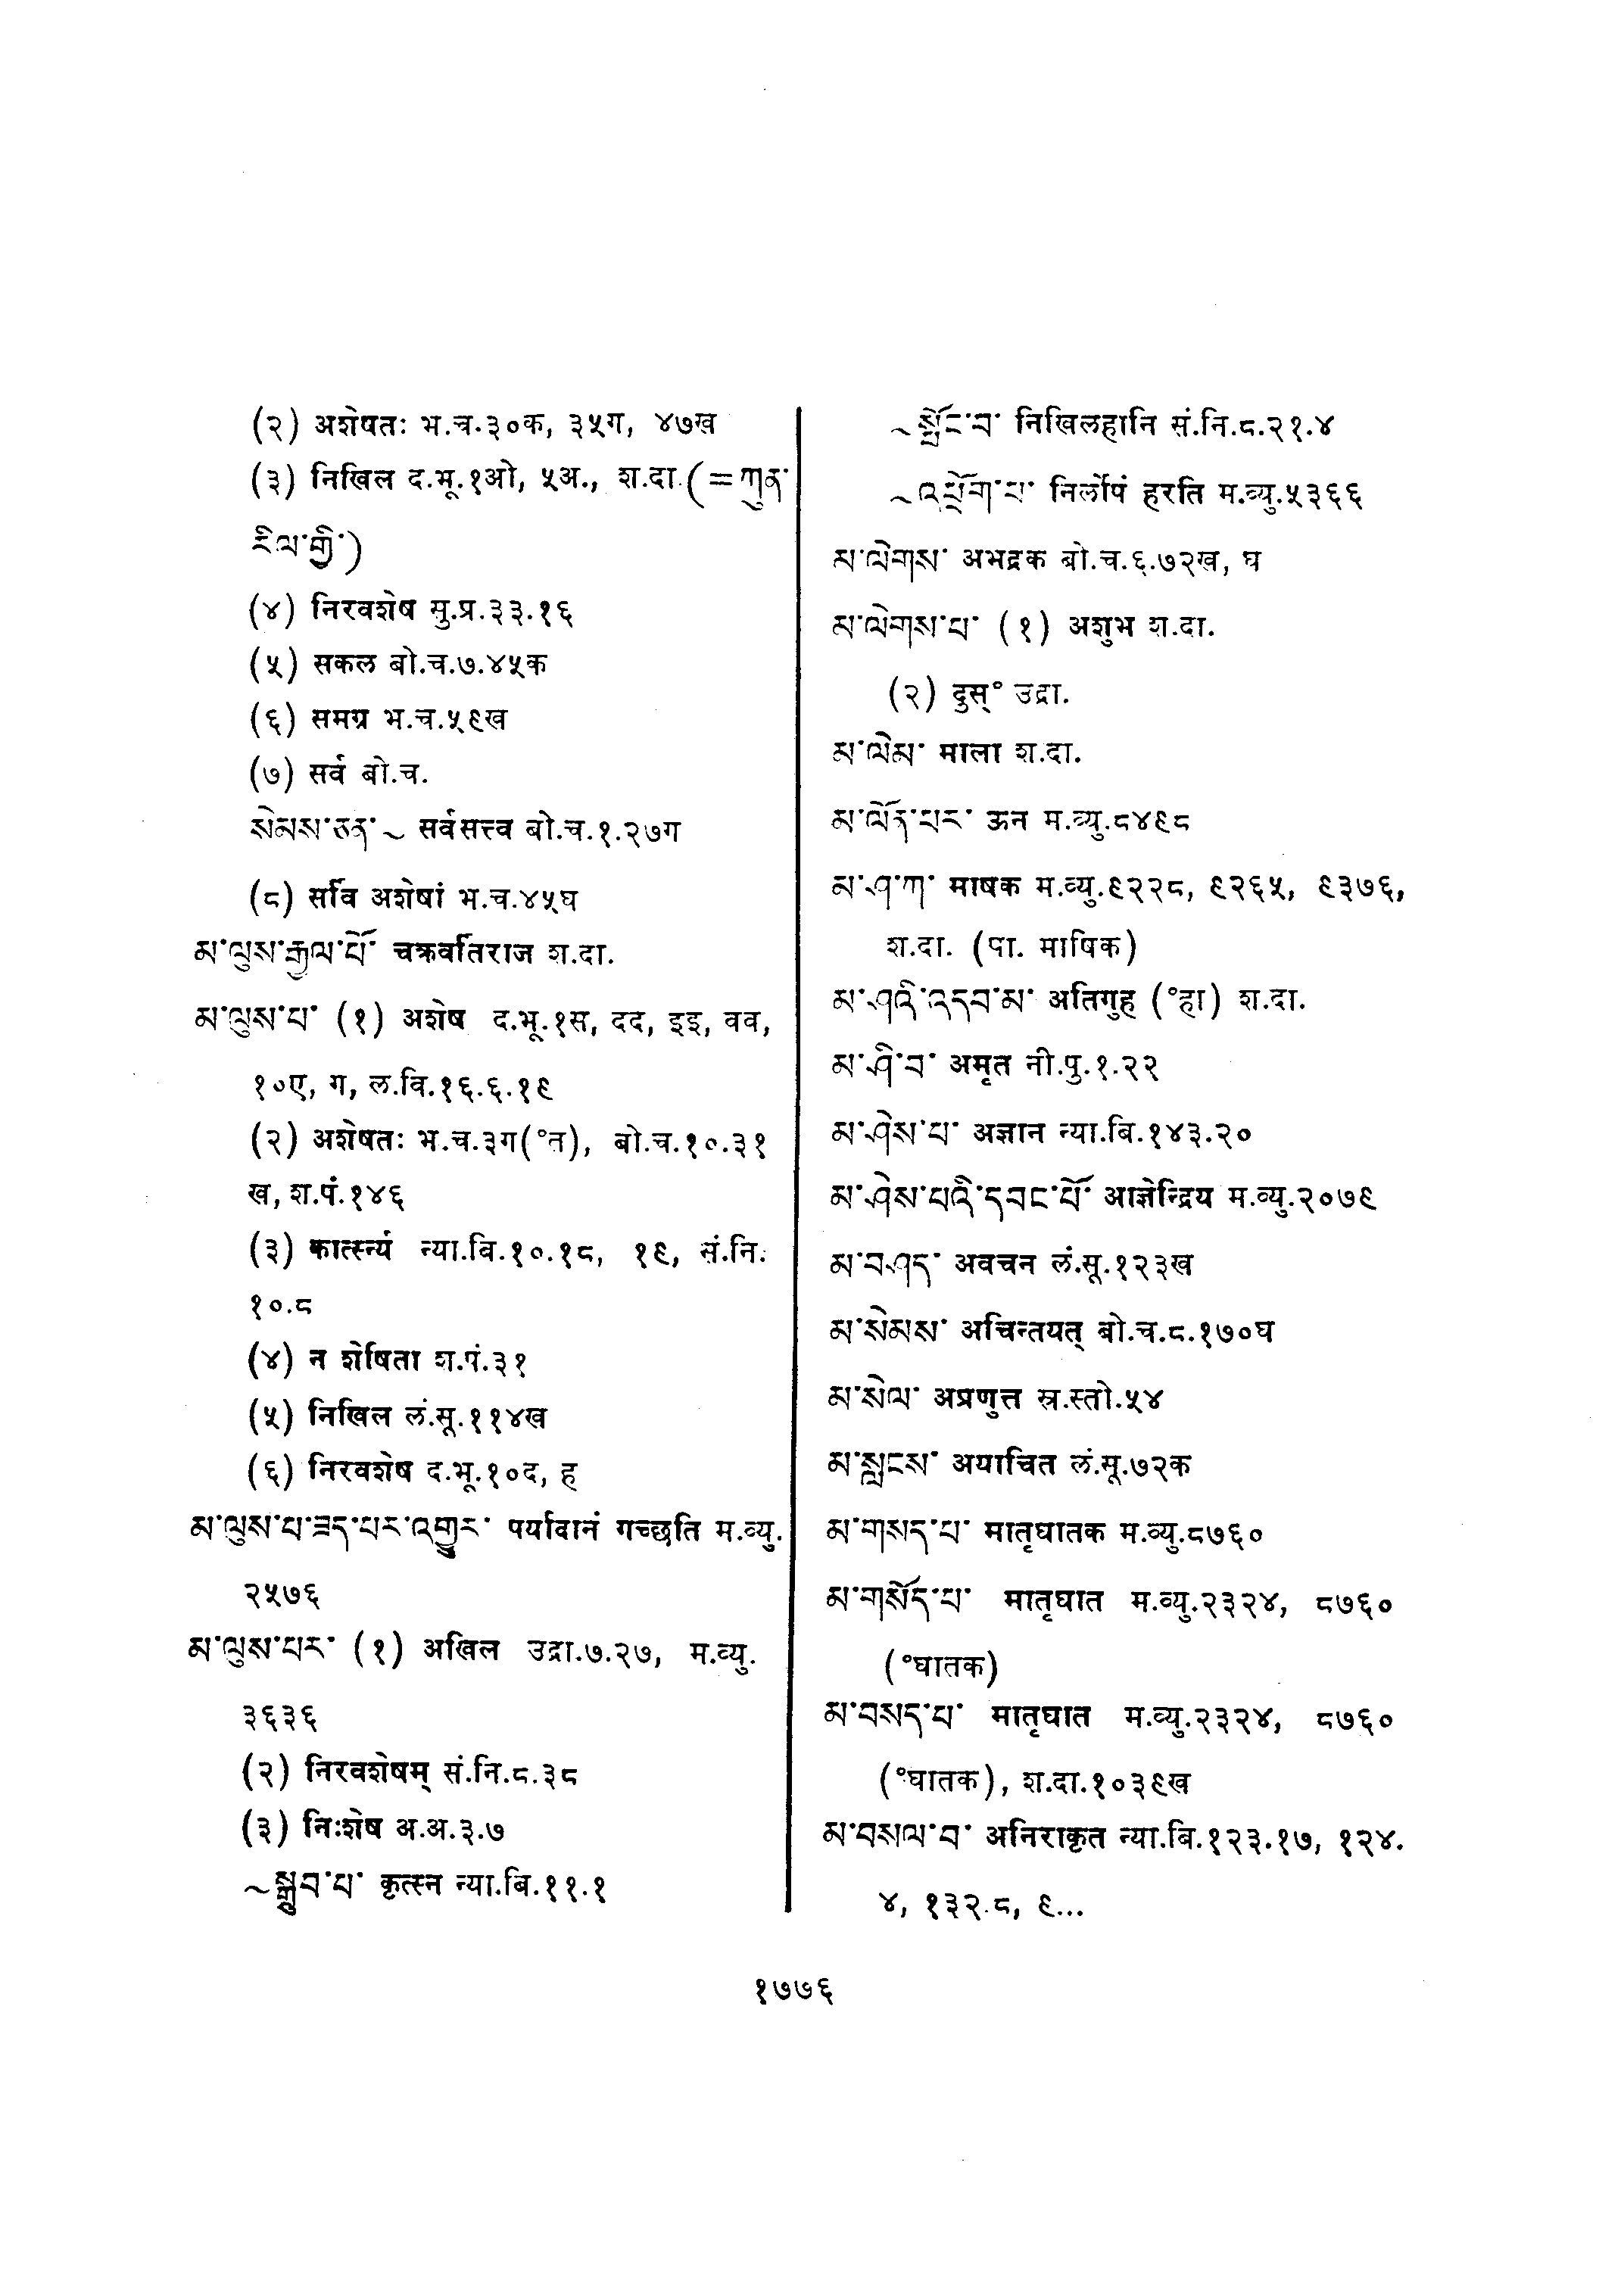 (२) अशेषतः भ.च.३०क, ३५ग, ४७ख
(३) निखिल द.भू.१ओ, ५अ., श.दा.(=ཀུན་
རིལ་གྱི་)
(४) निरवशेष सु.प्र.३३.१६
(५) सकल बो.च.७.४५क
(६) समग्र भ.च.५९ख
(७) सर्व बो.च.
སེམས་ཅན་~ सर्वसत्त्व बो.च.१.२७ग
(८) सर्वि अशेषां भ.च.४५घ
མ་ལུས་རྒྱལ་པོ་ चक्रवर्तिराज श.दा.
མ་ལུས་པ་ (१) अशेष द.भू.१स, दद, इइ, वव,
१०ए, ग, ल.वि.१६.६.१९
(२) अशेषतः भ.च.३ग(°त), बो.च.१०.३१
ख, श.पं.१४६
(३) कार्त्स्न्य न्या.वि.१०.१८, १९, सं.नि.
१०.८
(४) न शेषिता श.पं.३१
(५) निखिल लं.सू.११४ख
(६) निरवशेष द.भू.१०द, ह
མ་ལུས་པ་ཟད་པར་འགྱུར་ पर्यादानं गच्छति म.व्यु.
२५७६
མ་ལུས་པར་ (१) अखिल उद्रा.७.२७, म.व्यु.
३६३६
(२) निरवशेषम् सं.नि.८.३८
(३) निःशेष अ.अ.३.७
~སྒྲུབ་པ་ कृत्स्न न्या.बि.११.१
~སྤོང་བ་ निखिलहानि सं.नि.८.२१.४
~འཕྲོག་པ་ निर्लोपं हरति म.व्यु.५३६६
མ་ལེགས་ अभद्रक बो.च.६.७२ख, घ
མ་ལེགས་པ་ (१) अशुभ श.दा.
(२) दुस्° उद्रा.
མ་ལེམ་ माला श.दा.
མ་ལོན་པར་ ऊन म.व्यु.८४९८
མ་ཤ་ཀ་ माषक म.व्यु.९२२८, ९२६५, ९३७६,
श.दा. (पा. माषिक)
མ་ཤའི་འདབ་མ་ अतिगुह (°हा) श.दा.
མ་ཤི་བ་ अमृत नी.पु.१.२२
མ་ཤེས་པ་ अज्ञान न्या.बि.१४३.२०
མ་ཤེས་པའི་དབང་པོ་ आज्ञेन्द्रिय म.व्यु.२०७९
མ་བཤད་ अवचन लं.सू.१२३ख
མ་སེམས་ अचिन्तयत् बो.च.८.१७०घ
མ་སེལ་ अप्रणुत्त स्र.स्तो.५४
མ་སླངས་ अयाचित लं.सू.७२क
མ་གསད་པ་ मातृघातक म.व्यु.८७६०
མ་གསོད་པ་ मातृघात म.व्यु.२३२४, ८७६०
(°घातक)
མ་བསད་པ་ मातृघात म.व्यु.२३२४, ८७६०
(°घातक), श.दा.१०३९ख
མ་བསལ་བ་ अनिराकृत न्या.बि.१२३.१७, १२४.
४, १३२.८, ९...
१७७६